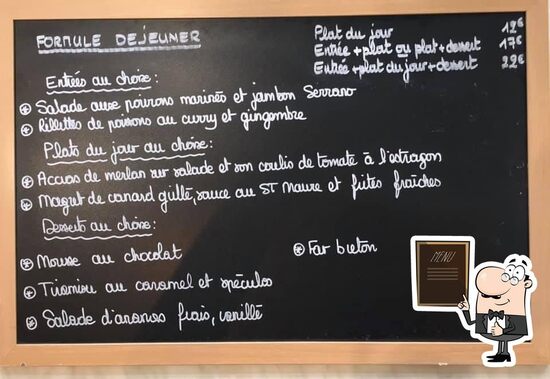 FORMULE DEJEUNER
Plat du jour 12€
Entrée + plat ou plat + dessert 17€
Entrée + plat du jour + dessert 22€
Entrées au choix :
Salade aux poivrons marinés et jambon Serrano
Rillettes de poissons au curry et gingembre
Plats du jour au choix :
Accras de merlan sur salade et son coulis de tomate à l'estragon
Magret de canard grillé, sauce au ST Maure et frites fraîches
Desserts au choix :
Mousse au chocolat
Far breton
Tiramisu au caramel et spéculos
Salade d'ananas frais, vanillé
MENU